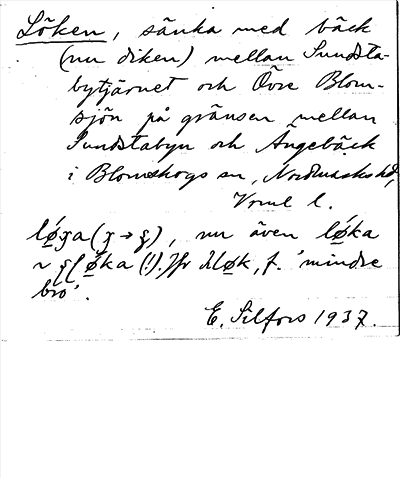 Löken, sänka med bäck
(nu diken) mellan Sundsta-
bytjärnet och Övre Blom-
sjön på gränsen mellan
Sundstabyn och Ängebäck
i Blomskogs sn, Nordmarks hd,
Vrml l.
(ɣ → ), nu även lǿ̱ka
~ (!). Jfr , f. 'mindre
bro'.
E. Silfors 1937.